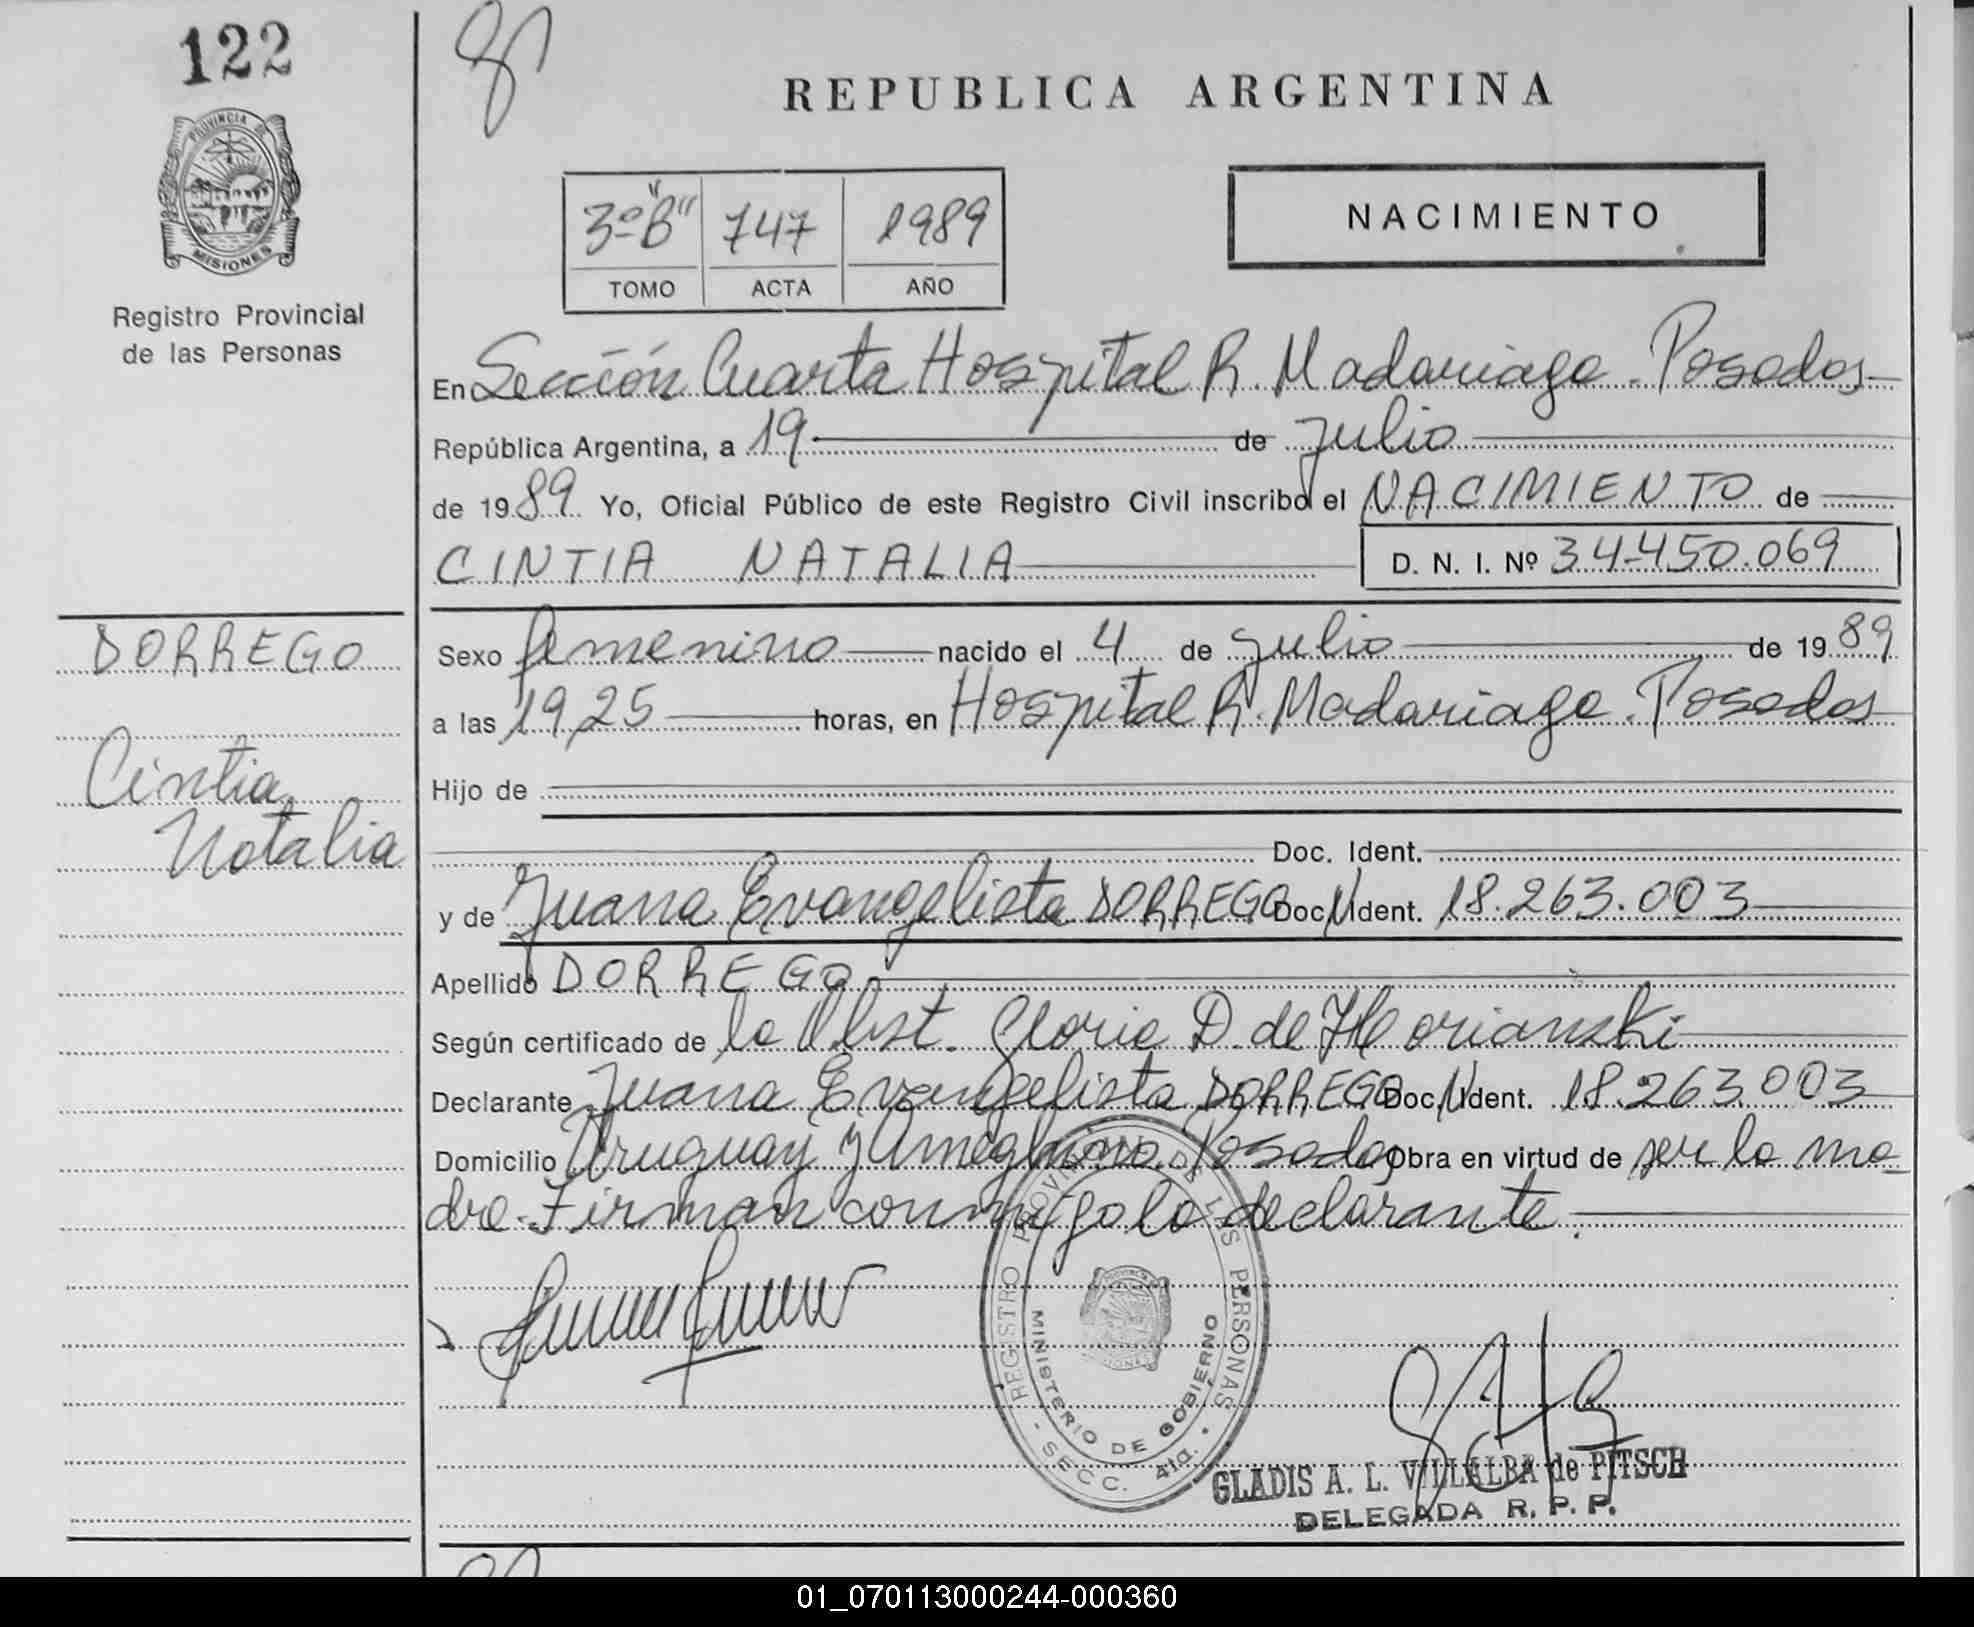 122
REPUBLICA ARGENTINA
PROVINCIA DE
MISIONES
Registro Provincial
de las Personas
3º "B" 747 1989
TOMO ACTA AÑO
NACIMIENTO
En Sección Cuarta Hospital R. Madariaga. Posadas
República Argentina, a 19 de Julio
de 1989 Yo, Oficial Público de este Registro Civil inscribo el NACIMIENTO de
CINTIA NATALIA D. N. I. Nº 34.450.069
DORREGO
Cintia
Natalia
Sexo femenino nacido el 4 de Julio de 1989
a las 19,25 horas, en Hospital R. Madariaga. Posadas
Hijo de
Doc. Ident.
y de Juana Evangelista DORREGO Doc. Ident. 18.263.003
Apellido DORREGO
Según certificado de la Obst. Gloria D. de
Declarante Juana Evangelista DORREGO Doc. Ident. 18.263.003
Domicilio Uruguay y Ameghino. Posadas Obra en virtud de ser la ma
dre. Firman conmigo la declarante.
REGISTRO PROVINCIAL DE LAS PERSONAS
MINISTERIO DE GOBIERNO
- SECC. 4ta. -
GLADIS A. L. VILLALBA de PITSCH
DELEGADA R. P. P.
01_070113000244-000360